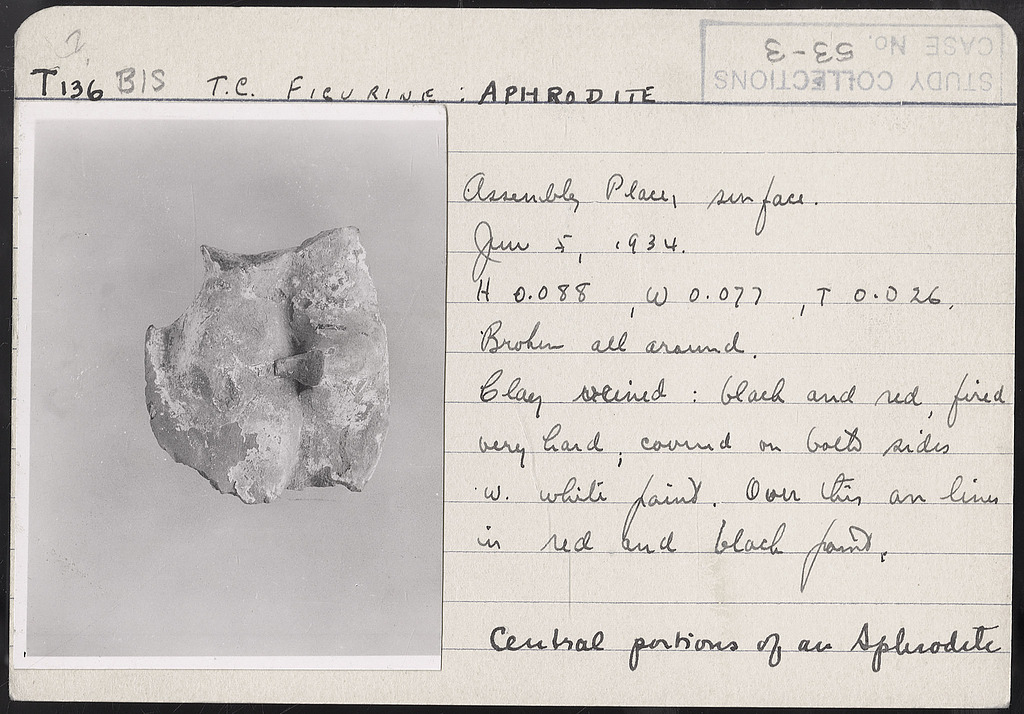 2
T136 BIS T.C. FIGURINE : APHRODITE
STUDY COLLECTIONS
CASE No. 53-3
Assembly Place, surface.
Jun 5, 1934.
H 0.088, W 0.077, T 0.026.
Broken all around.
Clay veined : black and red, fired
very hard, covered on both sides
w. white paint. Over this are lines
in red and black paint.
Central portions of an Aphrodite